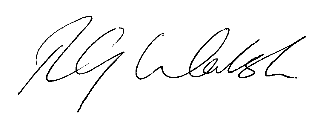 RG Walsh